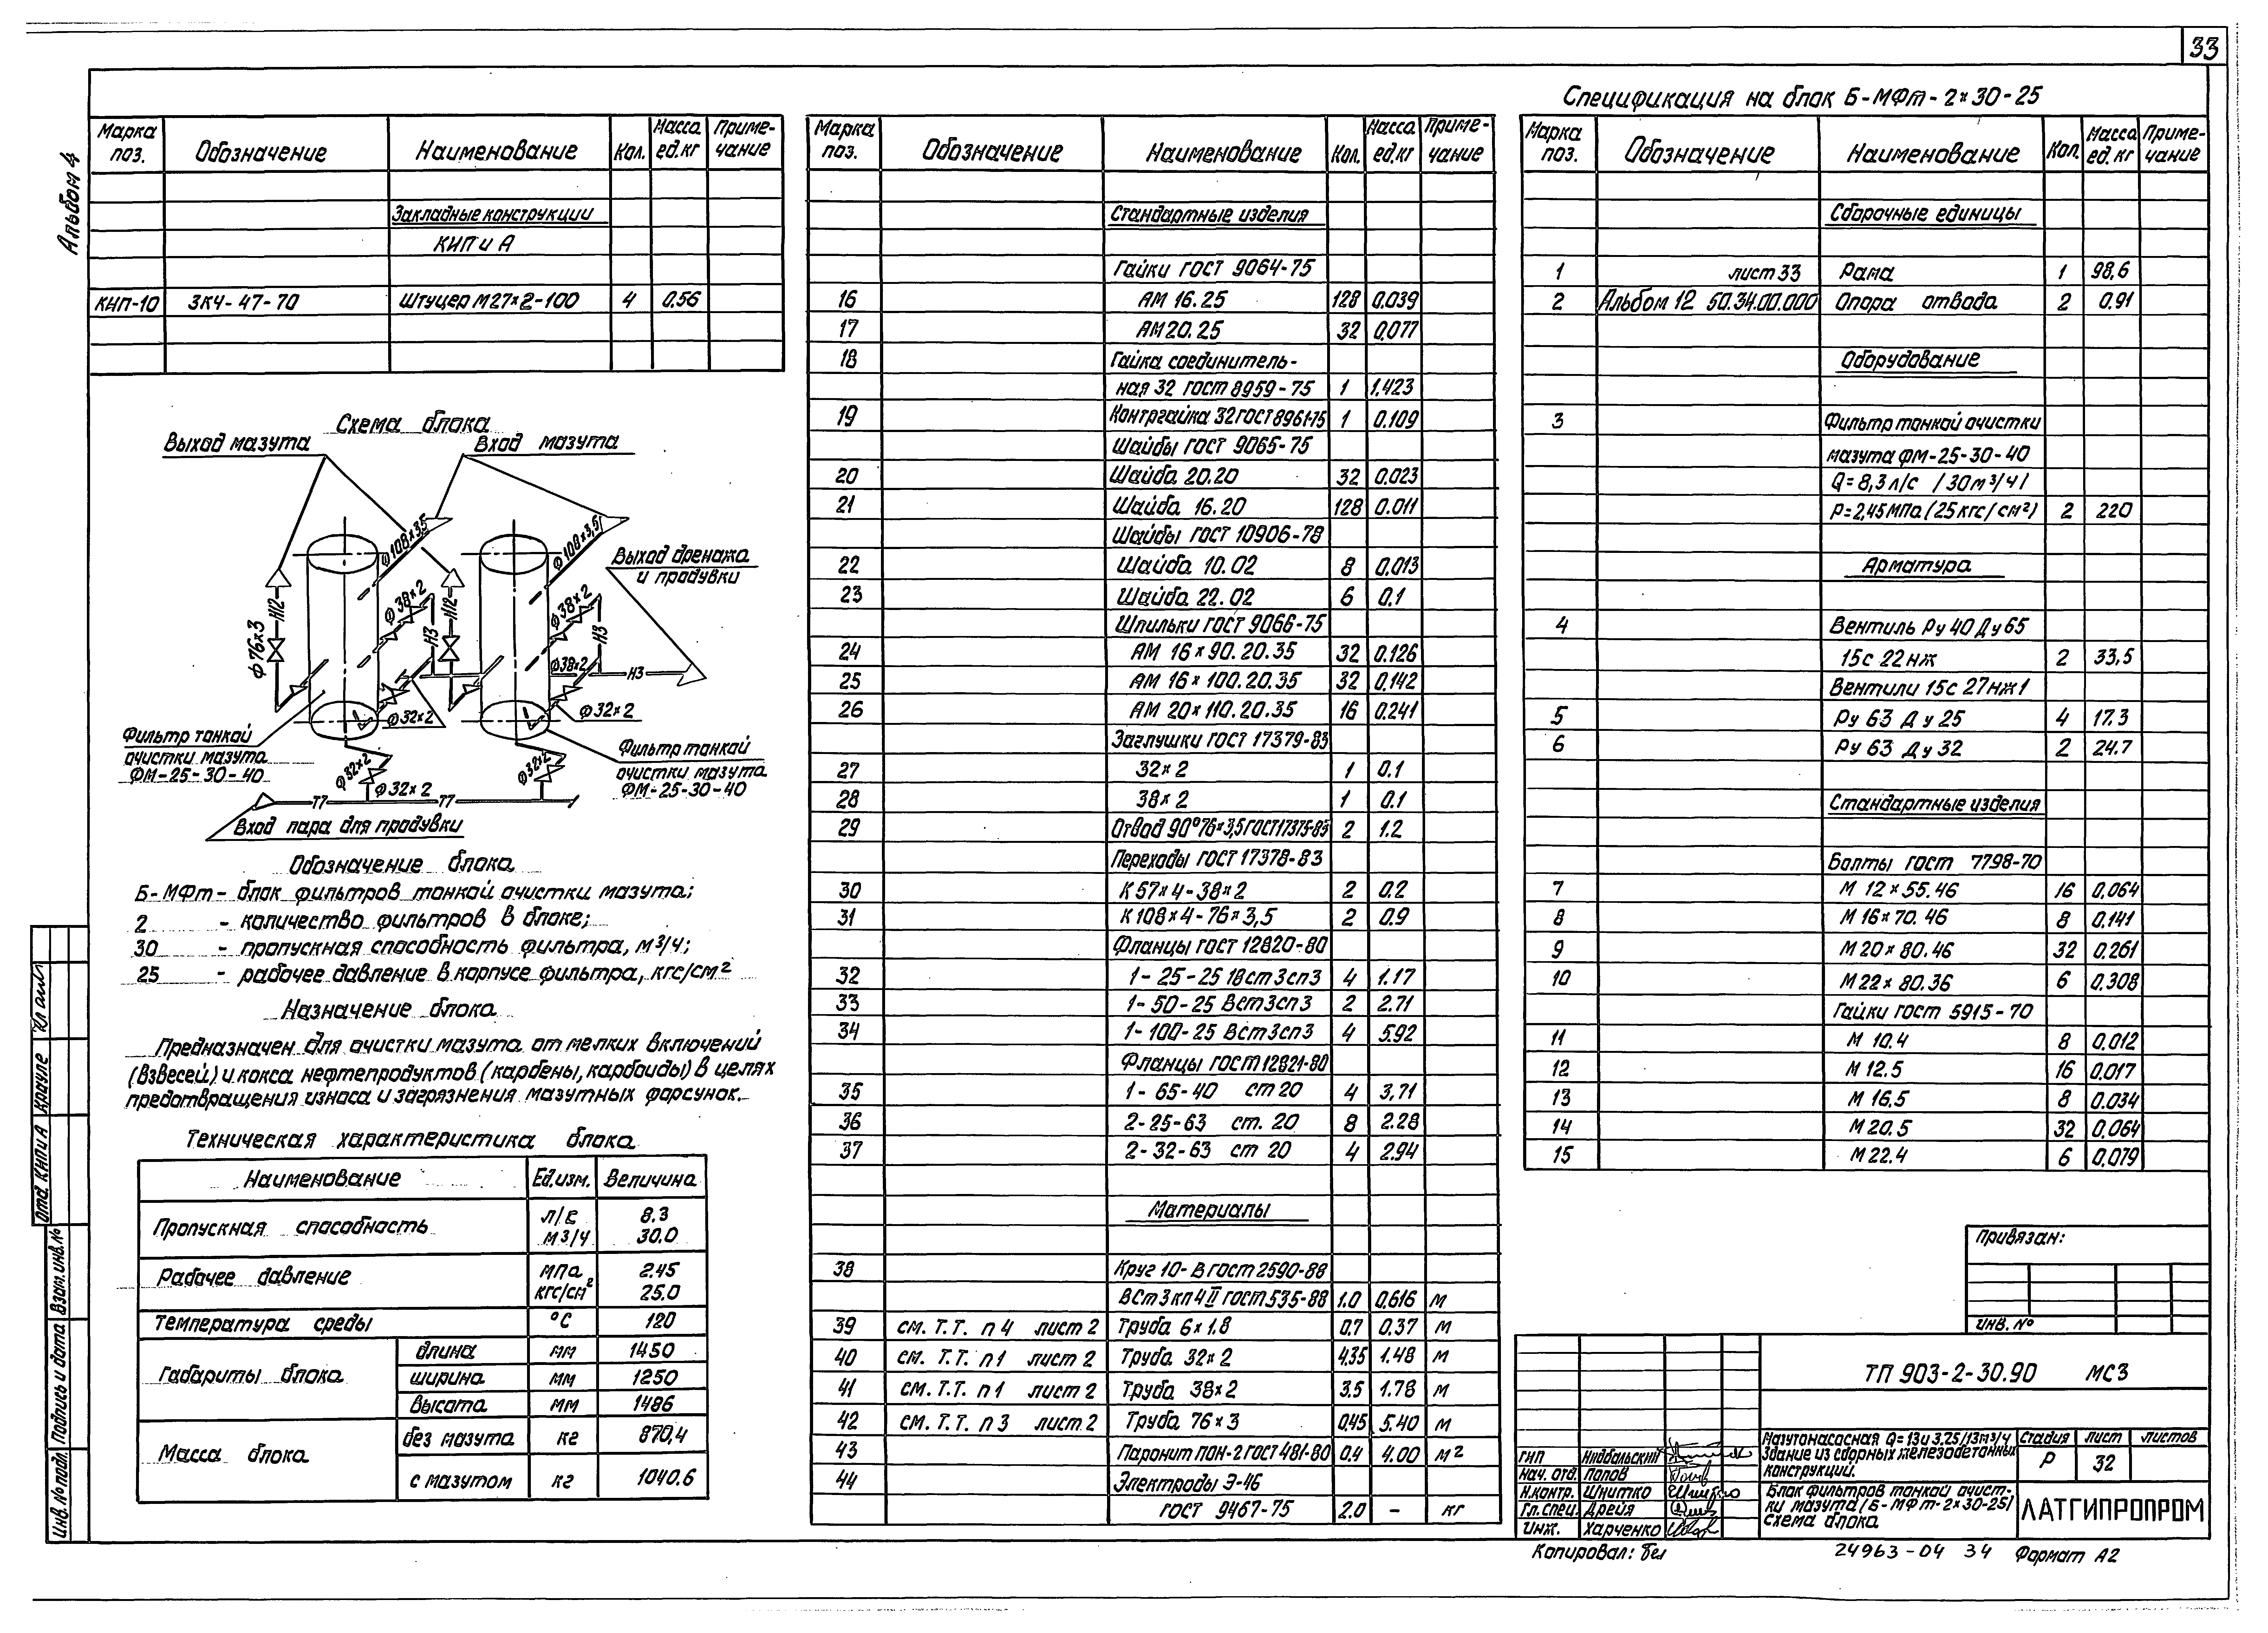 33
Альбом 4
Спецификация на блок Б-МФт-2×30-25
Марка поз. Обозначение Наименование Кол. Масса ед.кг Примечание
Закладные конструкции
КИП и А
КИП-10 ЗК4-47-70 Штуцер М27×2-100 4 0.56
Схема блока
Выход мазута Вход мазута
ф108×3,5 ф108×3,5
Выход дренажа
и продувки
ф38×2 ф38×2
Н12 Н12 Н3 Н3
ф76×3 ф38×2 Н3
ф32×2 ф32×2
Фильтр тонкой
очистки мазута
ФМ-25-30-40
Фильтр тонкой
очистки мазута
ФМ-25-30-40
ф32×2 ф32×2
ф32×2
Т7 Т7
Вход пара для продувки
Обозначение блока
Б-МФт - блок фильтров тонкой очистки мазута;
2 - количество фильтров в блоке;
30 - пропускная способность фильтра, м³/ч;
25 - рабочее давление в корпусе фильтра, кгс/см²
Назначение блока
Предназначен для очистки мазута от мелких включений
(взвесей) и кокса нефтепродуктов (карбены, карбоиды) в целях
предотвращения износа и загрязнения мазутных форсунок.
Техническая характеристика блока
Наименование Ед.изм. Величина
Пропускная способность л/с 8.3
м³/ч 30.0
Рабочее давление мпа 2.45
кгс/см² 25.0
Температура среды °С 120
Габариты блока длина мм 1450
ширина мм 1250
высота мм 1486
Масса блока без мазута кг 870,4
с мазутом кг 1040.6
Марка поз. Обозначение Наименование Кол. Масса ед.кг Примечание
Стандартные изделия
Гайки ГОСТ 9064-75
16 АМ 16.25 128 0.039
17 АМ 20.25 32 0.077
18 Гайка соединитель-
ная 32 ГОСТ 8959-75 1 1,423
19 Контргайка 32 ГОСТ 8961-75 1 0.109
Шайбы ГОСТ 9065-75
20 Шайба 20.20 32 0.023
21 Шайба 16.20 128 0.011
Шайбы ГОСТ 10906-78
22 Шайба 10.02 8 0.013
23 Шайба 22.02 6 0.1
Шпильки ГОСТ 9066-75
24 АМ 16×90.20.35 32 0.126
25 АМ 16×100.20.35 32 0.142
26 АМ 20×110.20.35 16 0.241
Заглушки ГОСТ 17379-83
27 32×2 1 0.1
28 38×2 1 0.1
29 Отвод 90°76×3,5 ГОСТ 17375-83 2 1.2
Переходы ГОСТ 17378-83
30 К 57×4-38×2 2 0.2
31 К 108×4-76×3,5 2 0.9
Фланцы ГОСТ 12820-80
32 1-25-25 Вст3сп3 4 1.17
33 1-50-25 Вст3сп3 2 2.71
34 1-100-25 Вст3сп3 4 5.92
Фланцы ГОСТ 12821-80
35 1-65-40 ст 20 4 3,71
36 2-25-63 ст. 20 8 2.28
37 2-32-63 ст 20 4 2.94
Материалы
38 Круг 10-В ГОСТ 2590-88
ВСт3кп4 II ГОСТ 535-88 1.0 0.616 м
39 см. Т.Т. п 4 лист 2 Труба 6×1.8 0.7 0.37 м
40 см. Т.Т. п 1 лист 2 Труба 32×2 4.35 1.48 м
41 см. Т.Т. п 1 лист 2 Труба 38×2 3.5 1.78 м
42 см. Т.Т. п 3 лист 2 Труба 76×3 0.45 5.40 м
43 Паронит ПОН-2 ГОСТ 481-80 0.4 4.00 м²
44 Электроды Э-46
ГОСТ 9467-75 2.0 - кг
Марка поз. Обозначение Наименование Кол. Масса ед.кг Примечание
Сборочные единицы
1 лист 33 Рама 1 98.6
2 Альбом 12 50.34.00.000 Опора отвода 2 0.91
Оборудование
3 Фильтр тонкой очистки
мазута ФМ-25-30-40
Q=8,3 л/с /30 м³/ч/
Р=2,45 МПа (25 кгс/см²) 2 220
Арматура
4 Вентиль Ру 40 Ду 65
15с 22нж 2 33,5
Вентили 15с 27нж1
5 Ру 63 Ду 25 4 17.3
6 Ру 63 Ду 32 2 24.7
Стандартные изделия
Болты ГОСТ 7798-70
7 М 12×55.46 16 0,064
8 М 16×70.46 8 0.141
9 М 20×80.46 32 0.261
10 М 22×80.36 6 0,308
Гайки ГОСТ 5915-70
11 М 10.4 8 0,012
12 М 12.5 16 0,017
13 М 16.5 8 0.034
14 М 20.5 32 0,064
15 М 22.4 6 0,079
Привязан:
Инв. №
ТП 903-2-30.90 МС3
Мазутонасосная Q=13 и 3.25/13 м³/ч
Здание из сборных железобетонных
конструкций.
Стадия Лист Листов
Р 32
ГИП
Нач. отд. Попов
Н.контр. Шнитко
Гл.спец. Дрейя
Инж. Харченко
Блок фильтров тонкой очист-
ки мазута /Б-МФт-2×30-25/
Схема блока
ЛАТГИПРОПРОМ
Копировал: Бел
24963-04 34
Формат А2
Отд. КИП и А Крауле
Инв. № подл. Подпись и дата Взам. инв. №